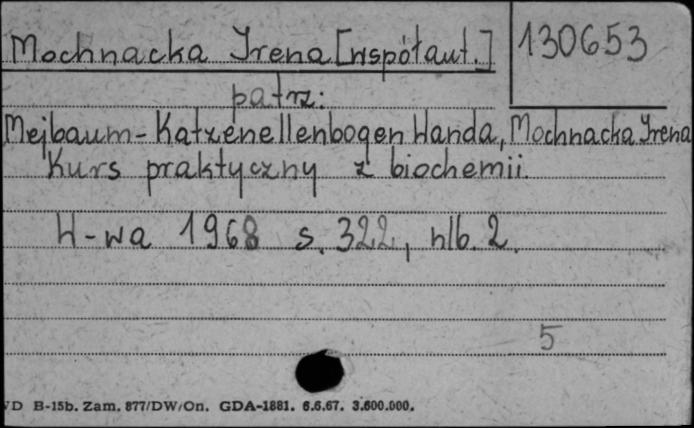 Mochnacka Irena [współaut.]
130653
patrz:
Mejbaum-Katzenellenbogen Wanda, Mochnacka Irena
Kurs praktyczny z biochemii
W-wa 1968 s. 322, nlb. 2.
5
B-15b. Zam. 877/DW/On. GDA-1881. 6.6.67. 3.600.000.